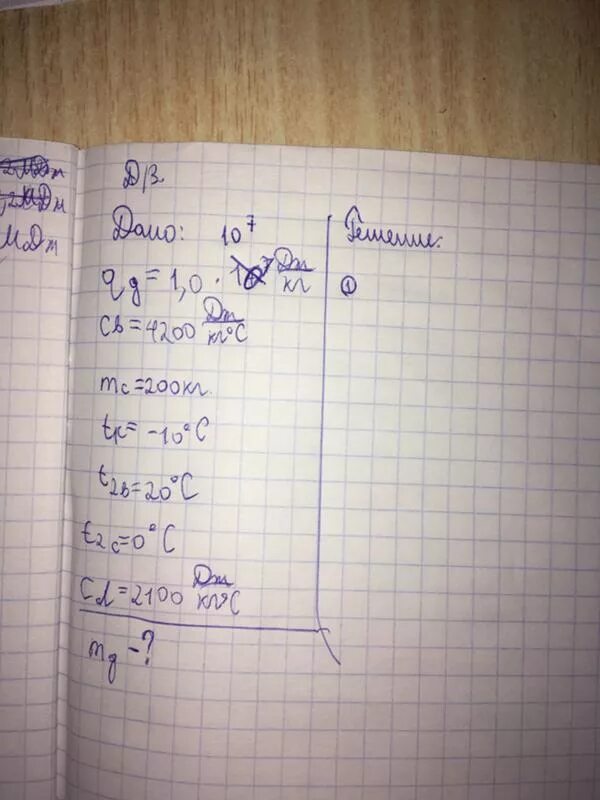 МДж
Д/З.
Дано: 10⁷
qд = 1,0 · Дж/кг
cв = 4200 Дж/кг°C
mc = 200кг.
tк = -10°C
t2в = 20°C
t2c = 0°C
cл = 2100 Дж/кг°C
mд - ?
Решение:
①